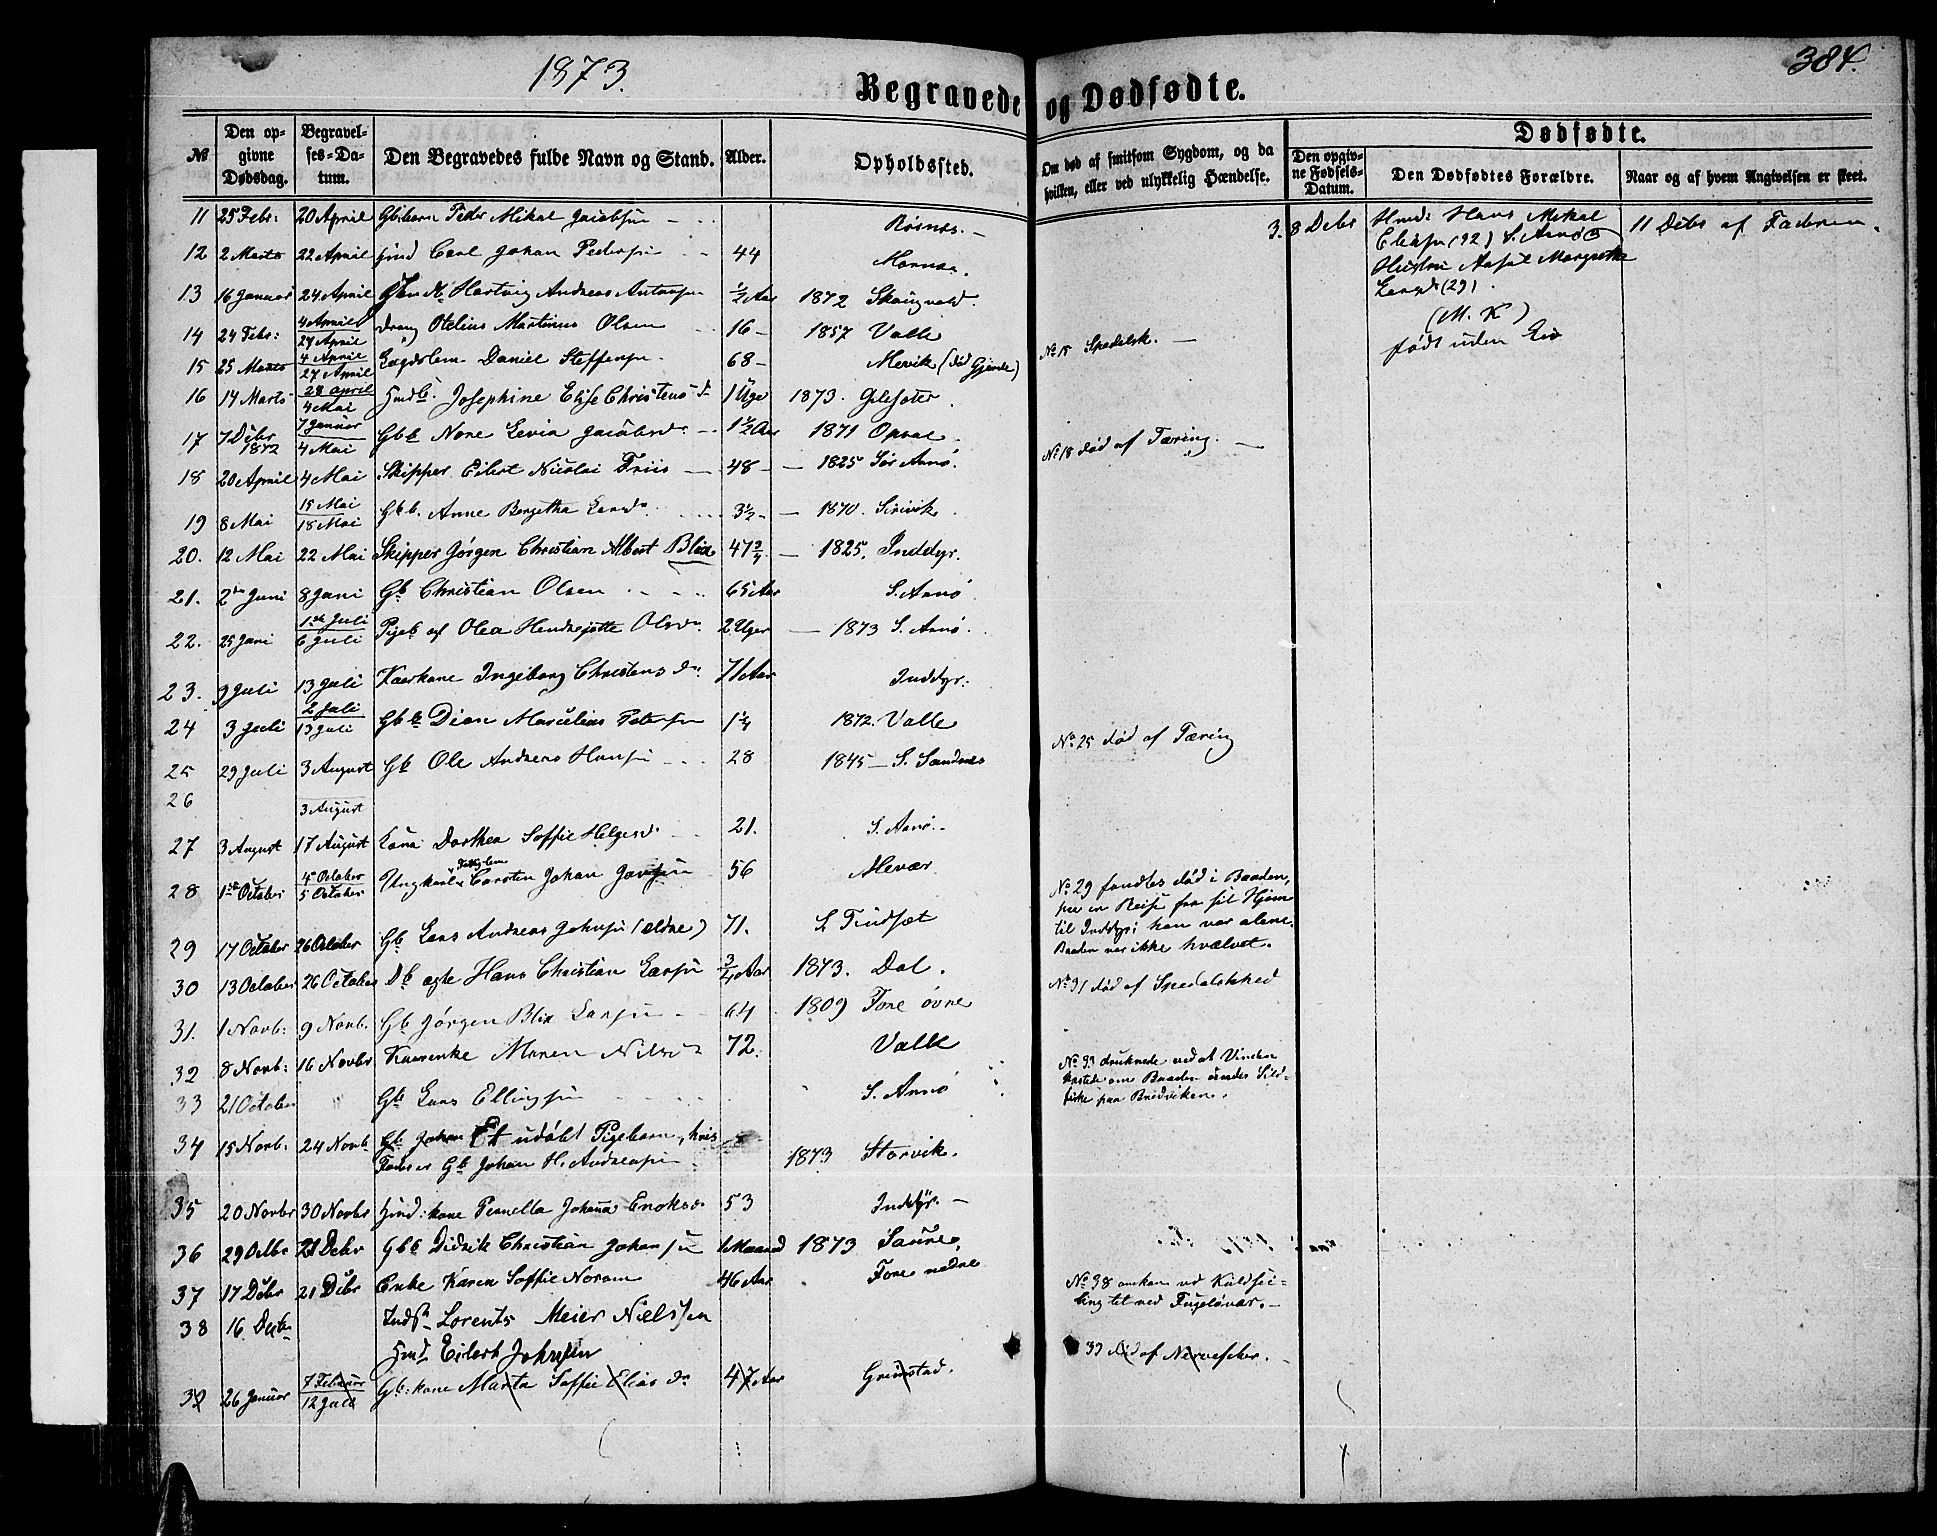 1873.
384.
Begravede og Dødfødte.
№
Den opgivne Dødsdag.
Begravelses-Datum.
Den Begravedes fulde Navn og Stand.
Alder.
Opholdssted.
Om død af smitsom Sygdom, og da hvilken, eller ved ulykkelig Hændelse.
Dødfødte.
Den opgivne Fødsels-Datum.
Den Dødfødtes Forældre.
Naar og af hvem Angivelsen er skeet.
11 25 Febr: 20 April Gbbarn Peder Mikal Jacobsen
12 2 Marts 22 April Hmd Carl Johan Pedersen 44
13 16 Januar 24 April Hartvig Andreas 1/2 Aar 1872
14 24 Febr: 4 April 27 April Dreng Otelius Martinus Olsen 16 - 1857 Valle
15 25 Marts 4 April 27 April Lægdslem Daniel Steffensen 68 - Mevik (død Gjerde)
16 14 Marts 28 April 4 Mai Hmdb. Josephine Elise Christensd 1 Uge 1873. Gilsæter
17 7 Decbr 1872 7 Januar 4 Mai Gbb Nore Levia Jacobsd 1 1/2 Aar 1871 Opsal
18 20 April 4 Mai Skipper Eilert Nicolai Friis 48 - 1825 Sør Arnø.
19 8 Mai 15 Mai 18 Mai Gbb. Anne Bergitha Larsd 3 1/2 - 1870.
20. 12 Mai 22 Mai Skipper Jørgen Christian Albert Blix 47 3/4 - 1825. Inddyr.
21. 2den Juni 8 Juni Gb Christian Olsen 65 Aar S. Arnø
22. 25 Juni 1ste Juli 6 Juli Pigeb af Olea Olsd 2 Uger 1873 S. Arnø.
23. 9 Juli 13 Juli Kaarkone Ingeborg Christensd 71 Aar Inddyr.
24 3 Juli 2 Juli 13 Juli Gbb Petersen 1 1/4 1872. Valle
25 29 Juli 3 August Gb Ole Andreas Hansen 28 1845 - S. Sandnes
26
27 3 August 3 August 17 August Kone Dorthea Soffie Helgesd 21. S. Arnø.
28 1ste October 4de October 5 October Ungkarl Carsten Johan Jansen 56 Alevær
29 17 October 26 October Gb Lars Andreas Johnsen (ældre) 71.
30 13 October 26 October Db ægte Hans Christian Larsen 3/4 Aar 1873. Dal.
31. 1 Novb: 9 Novb. Gb Jørgen Blix Larsen 64 1809 Fore øvre
32 8 Novb: 16 Novbr Kaarenke Maren Nilsd 72. Valle
33 21 October Gb Lars Ellingsen S. Arnø
34 15 Novb. 24 Novb Gb Johan Et udøbt Pigebarn, hvis
Fader er Gb Johan H. Andreasen 1873 Storvik.
35 20 Novbr 30 Novbr Hmd: kone Pernella Johanna Enoksd 53 Inddyr. -
36 29 Octbr 21 Decbr Gbb Didrik Christian Johansen 1 Maaned 1873 Saure
37 17 Decbr 21 Decbr Enke Karen Soffie Norum 46 Aar Fore nedre
38 16 Decbr Inds Lorents Meier Nielssen
Hmd Eilert Johnsen
39 26 Januar 7 Februar 12 Juli Gb: kone Marta Soffie Eliasd 47 Aar Grimstad.
No 15 Spedalsk.
No 18 død af Tæring.
No 25 død af Tæring
No 29 fandtes død i Baaden,
paa en Reise fra sit Hjem
til Inddyr; han var alene.
Baaden var ikke hvælvet.
No 31 død af Spedalskhed
No 33 druknede ved at Vinden
kastede om Baaden under Sild-
fiske paa Bredviken.
No 38 omkom ved Kuldsei-
ling tet ved Fugeløvær. -
39 død af Nervefeber. -
3. 8 Decbr Hmd: Hans Mikal
Eliasen (32) S. Arnø
Hustru Margrethe
Larsd (29).
(M. K)
født uden Liv
11 Decbr af Faderen.